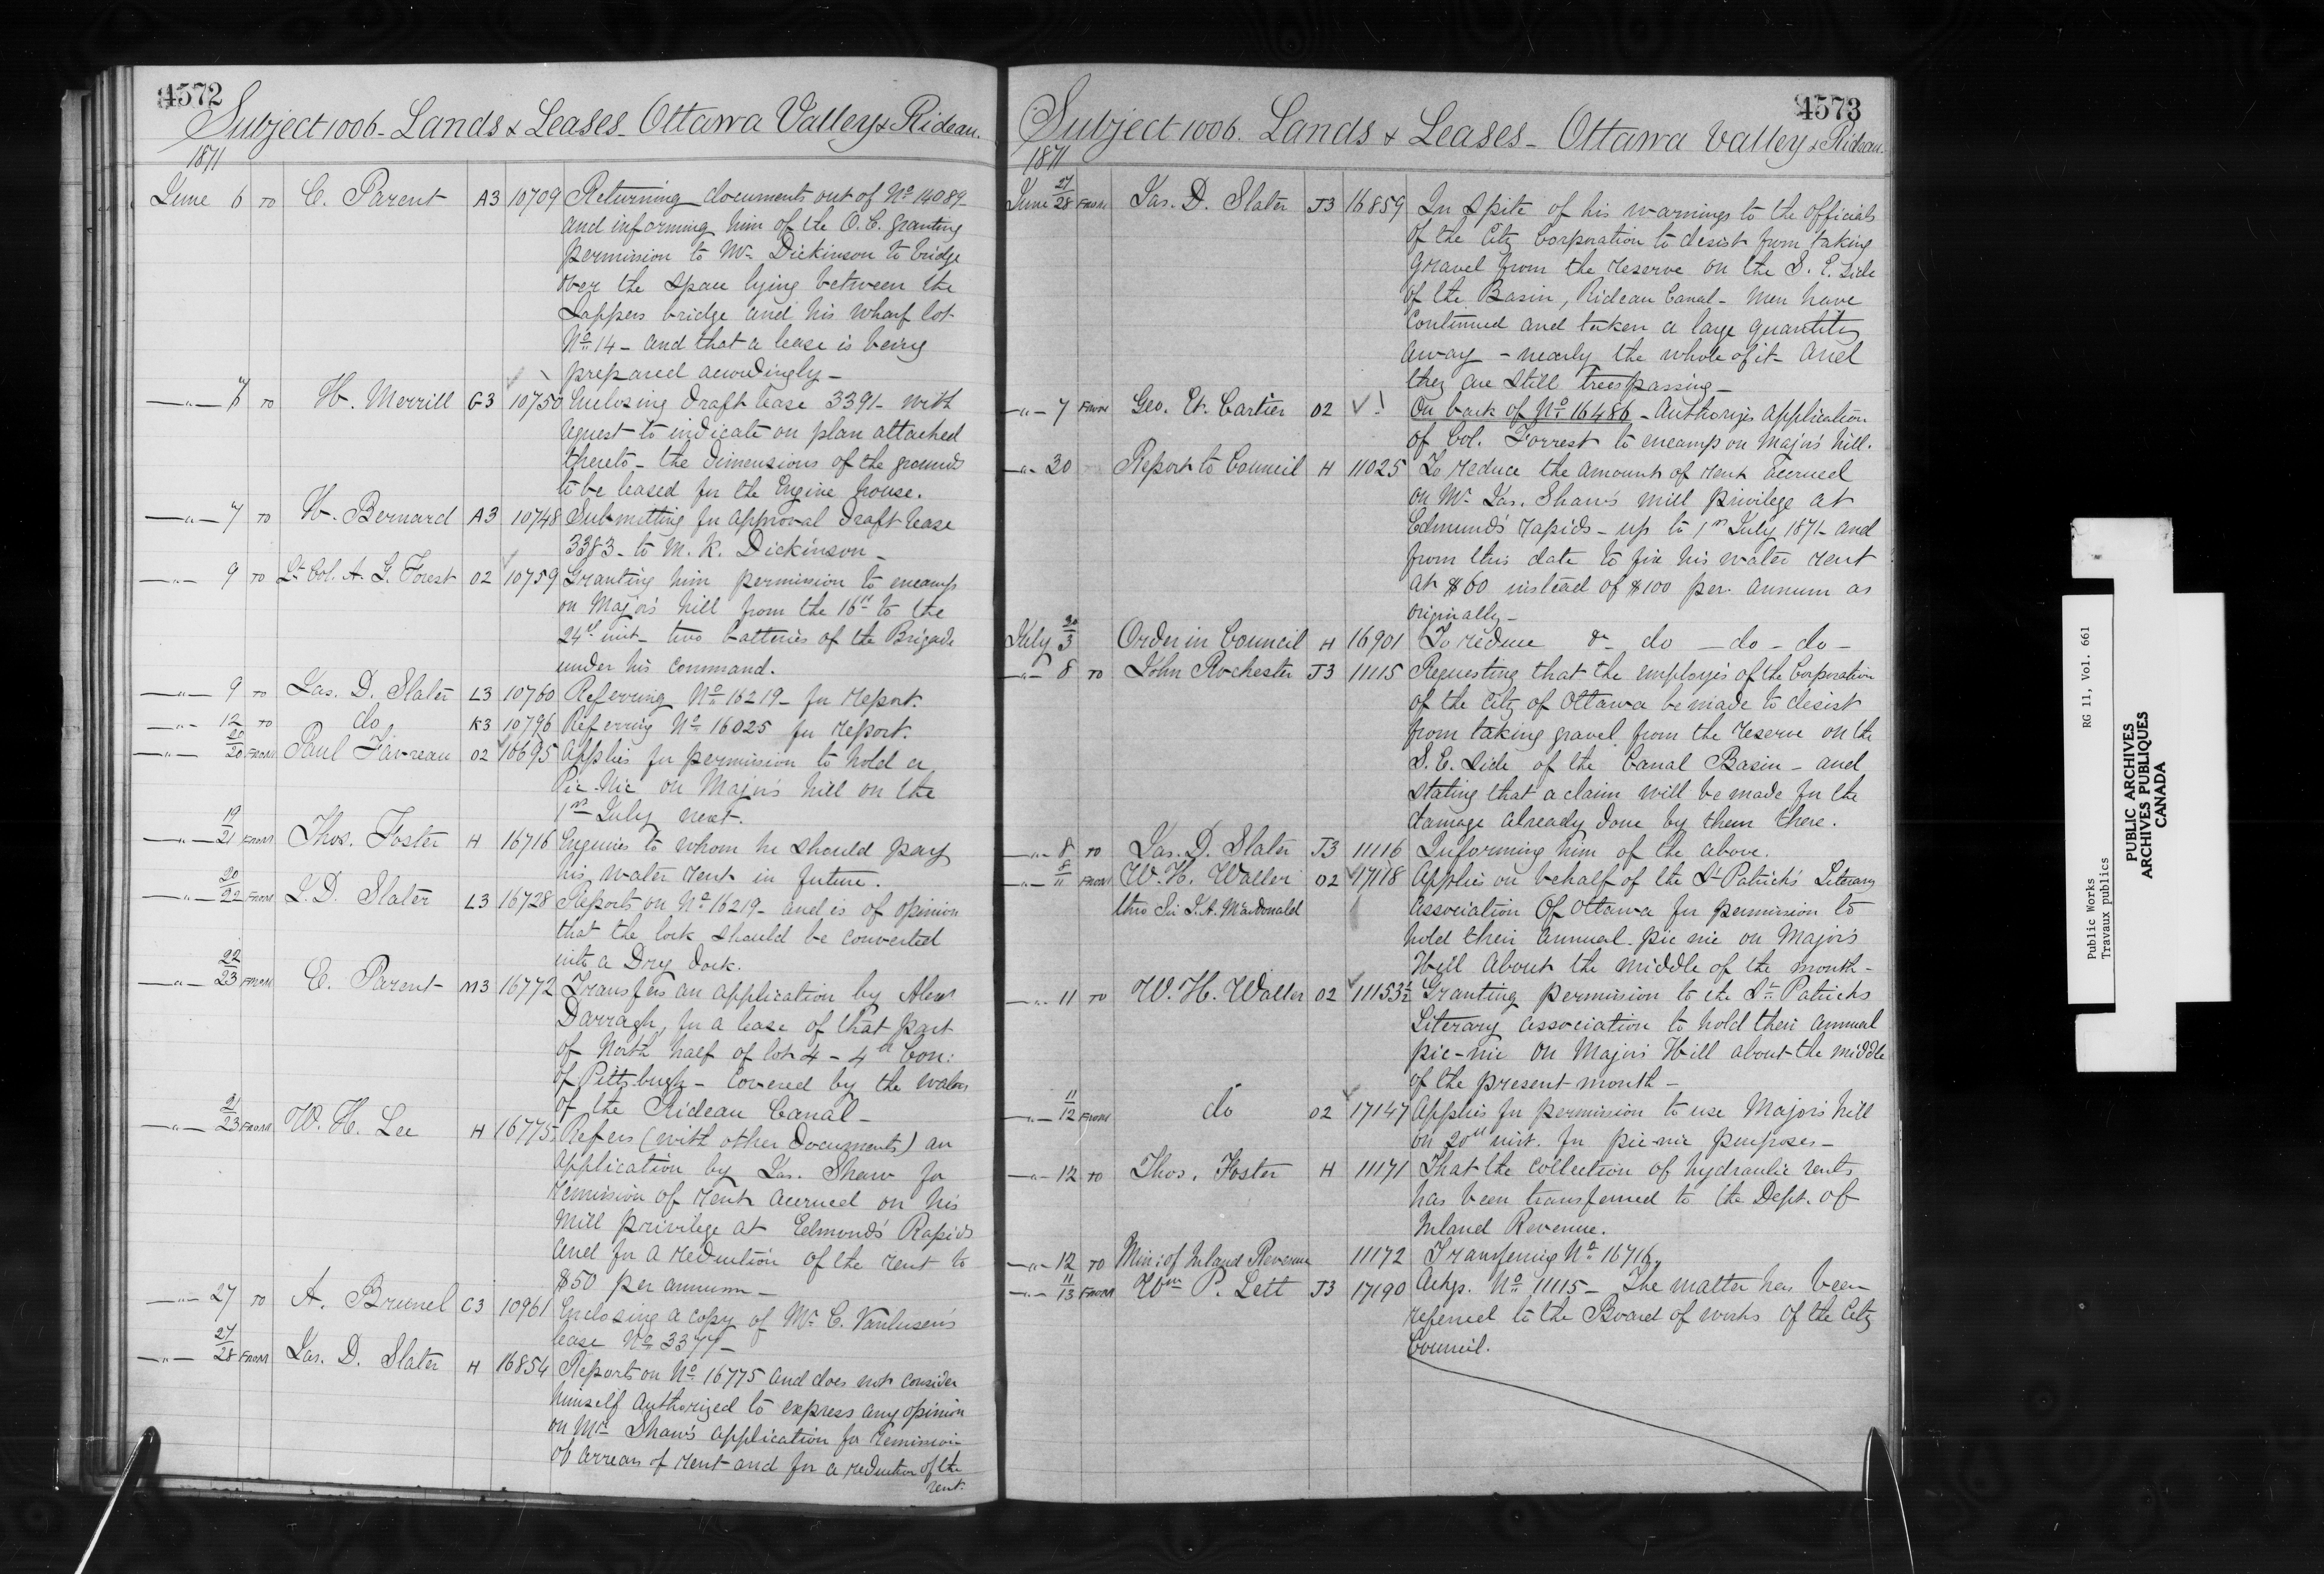 4572
Subject 1006 - Lands & Leases - Ottawa Valley & Rideau.
1871
June 6 TO E. Parent A3 10709 Returning documents out of No 14089
and informing him of the O.C. granting
permission to Mr Dickinson to bridge
over the space lying between the
Sappers bridge and his wharf lot
No 14 - and that a lease is being
prepared accordingly -
-"- 7 TO H. Merrill G3 10750 Enclosing draft lease 3391 - with
request to indicate on plan attached
thereto - the dimensions of the grounds
to be leased for the Engine house.
-"- 7 TO H. Bernard A3 10748 Submitting for approval draft lease
3383 - to M. K. Dickinson -
-"- 9 TO Lt Col. A. G. Forest O2 10759 Granting him permission to encamp
on Major's hill from the 16th to the
24th inst - two batteries of the Brigade
under his command.
-"- 9 TO Jas. D. Slater L3 10760 Referring No 16219 - for report.
-"- 12 TO do K3 10796 Referring No 16025 for report.
-"- 20/20 FROM Paul Favreau O2 16695 Applies for permission to hold a
Pic-Nic on Major's hill on the
1st July next.
-"- 19/21 FROM Thos. Foster H 16716 Enquires to whom he should pay
his water rent in future.
-"- 20/22 FROM J. D. Slater L3 16728 Reports on No 16219 - and is of opinion
that the lock should be converted
into a Dry dock.
-"- 22/23 FROM E. Parent M3 16772 Transfers an application by Alexr
Darragh, for a lease of that part
of North half of lot 4 - 4th Con:
of Pittsburgh - covered by the waters
of the Rideau Canal -
-"- 21/23 FROM W. H. Lee H 16775 Refers (with other documents) an
application by Jas. Shaw for
remission of rent accrued on his
mill privilege at Edmond's Rapids
and for a reduction of the rent to
$50 per annum -
-"- 27 TO A. Brunel C3 10961 Enclosing a copy of Mr C. Vanlusen's
lease No 3377 -
-"- 27/28 FROM Jas. D. Slater H 16854 Reports on No 16775 and does not consider
himself authorized to express any opinion
on Mr Shaw's application for remission
of arrears of rent and for a reduction of the
rent.
4573
Subject 1006. Lands & Leases - Ottawa Valley & Rideau.
1871
June 27/28 FROM Jas. D. Slater J3 16859 In spite of his warnings to the officials
of the City Corporation to desist from taking
gravel from the reserve on the S. E. side
of the Basin, Rideau Canal - men have
continued and taken a large quantity
away - nearly the whole of it and
they are still trespassing -
-"- 7 FROM Geo. Et. Cartier O2 On back of No 16486 - Authorizes application
of Col. Forrest to encamp on Major's hill.
-"- 30 Report to Council H 11025 To reduce the amount of rent accrued
on Mr Jas. Shaw's mill privilege at
Edmund's rapids - up to 1st July 1871 - and
from this date to fix his water rent
at $60 instead of $100 per. annum as
originally -
July 30/3 Order in Council H 16901 To reduce & do - do - do -
-"- 8 TO John Rochester J3 11115 Requesting that the employés of the Corporation
of the City of Ottawa be made to desist
from taking gravel from the reserve on the
S. E. side of the Canal Basin - and
stating that a claim will be made for the
damage already done by them there.
-"- 8 TO Jas. D. Slater J3 11116 Informing him of the above.
-"- 8/11 FROM W. H. Waller O2 17118 Applies on behalf of the St Patrick's Literary
thro Sir J. A. Macdonald Association of Ottawa for permission to
hold their annual pic nic on Major's
Hill about the middle of the month -
-"- 11 TO W. H. Waller O2 11153½ Granting permission to the St Patricks
Literary Association to hold their annual
pic-nic on Major's Hill about the middle
of the present month -
-"- 11/12 FROM do O2 17147 Applies for permission to use Major's hill
on 20th inst. for pic-nic purposes -
-"- 12 TO Thos. Foster H 11171 That the collection of hydraulic rents
has been transferred to the Dept. of
Inland Revenue.
-"- 12 TO Min: of Inland Revenue 11172 Transferring No 16716.
-"- 11/13 FROM Wm P. Lett J3 17190 Ackgs. No 11115 - The matter has been
referred to the Board of works of the City
Council.
Public Works RG 11, Vol. 661
Travaux publics
PUBLIC ARCHIVES
ARCHIVES PUBLIQUES
CANADA